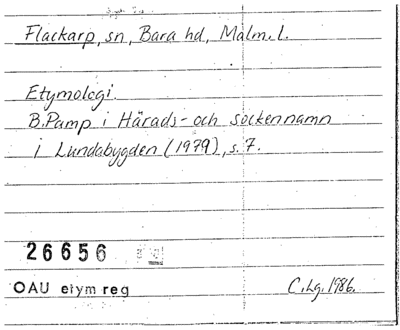 Flackarp, sn, Bara hd, Malm.l.
Etymologi.
B.Pamp i Härads- och sockennamn
i Lundabygden (1979), s. 7.
26656
OAU etym reg
C.Lg. 1986.